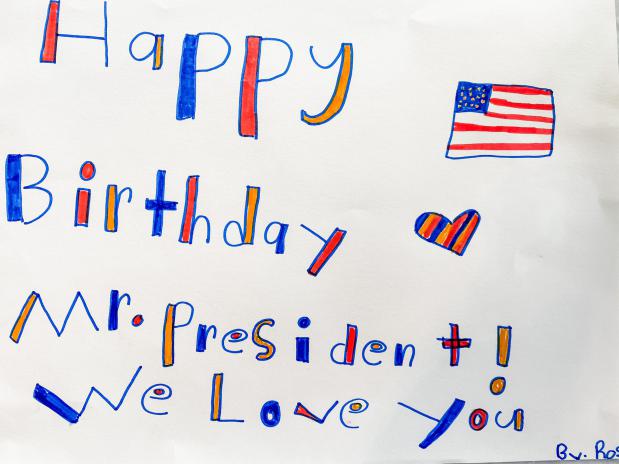 Happy
Birthday
Mr. President!
We Love you